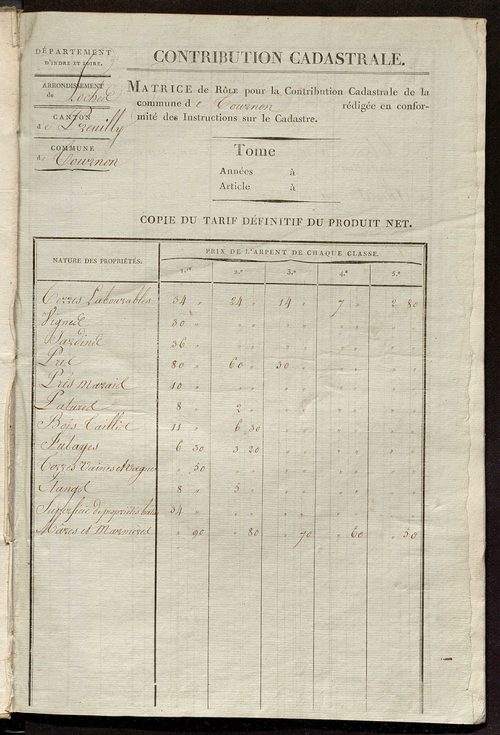 DÉPARTEMENT
D'INDRE ET LOIRE.
ARRONDISSEMENT
de Loches
CANTON
de Preuilly
COMMUNE
de Tournon
CONTRIBUTION CADASTRALE.
MATRICE DE RÔLE pour la Contribution Cadastrale de la
commune de Tournon rédigée en confor-
mité des Instructions sur le Cadastre.
Tome
Années à
Article à
COPIE DU TARIF DÉFINITIF DU PRODUIT NET.
NATURE DES PROPRIÉTÉS. PRIX DE L'ARPENT DE CHAQUE CLASSE.
1.re 2.e 3.e 4.e 5.e
Terres Labourables 34 " 24 " 14 " 7 " 2 80
Vignes 30 "
Jardins 36 "
Prés 80 " 60 " 30 "
Prés marais 10 "
Patures 8 " 2 "
Bois Taillis 11 " 6 50
Fulayes 6 50 3 20
Terres Vaines et Vagues " 50
Etangs 8 " 5 "
Superficie de propriétés baties 34 "
Mares et Marnières " 90 " 80 " 70 " 60 " 50